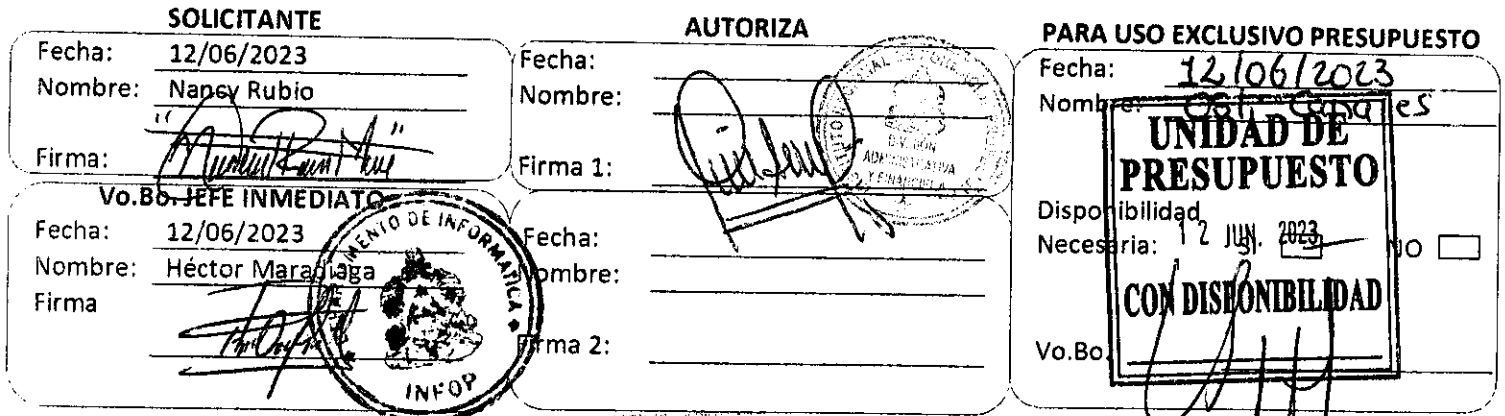 SOLICITANTE
Fecha: 12/06/2023
Nombre: Nancy Rubio
Firma:
Vo.Bo. JEFE INMEDIATO
Fecha: 12/06/2023
Nombre: Héctor Maradiaga
Firma
DEPARTAMENTO DE INFORMATICA
INFOP
AUTORIZA
Fecha:
Nombre:
Firma 1:
DIVISION
ADMINISTRATIVA
Y FINANCIERA
Fecha:
Nombre:
Firma 2:
PARA USO EXCLUSIVO PRESUPUESTO
Fecha: 12/06/2023
Nombre:
UNIDAD DE
PRESUPUESTO
Disponibilidad
Necesaria: SI NO
12 JUN. 2023
CON DISPONIBILIDAD
Vo.Bo.